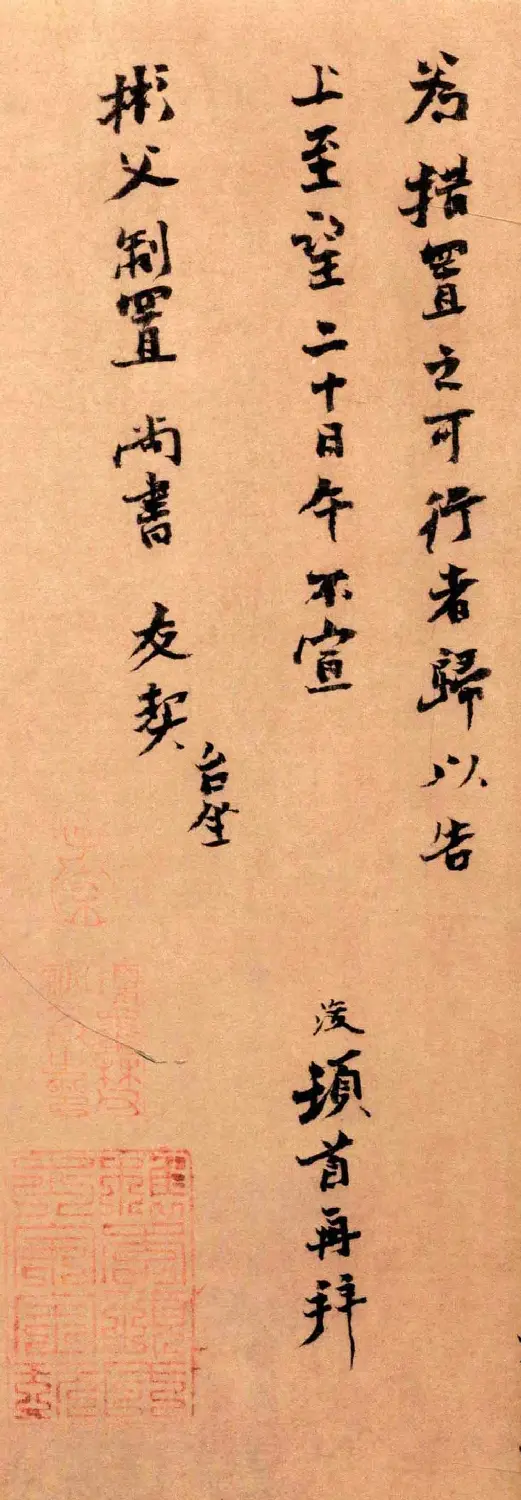 為措置之可行者歸以告
上至望二十日午不宣
浚頓首再拜
彬父制置尚書友契
台坐